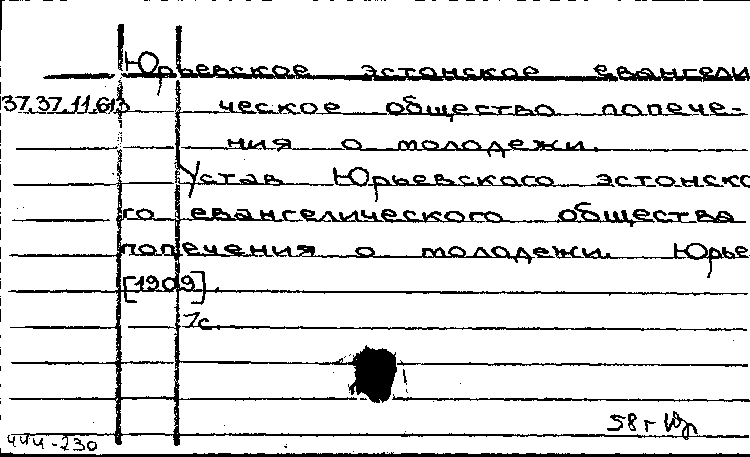 Юрьевское эстонское евангели
37.37.11.613 ческое общество попече-
ния о молодежи.
Устав Юрьевского эстонско
го евангелического общества
попечения о молодежи. Юрье
[1909].
7с.
58 г
444-230